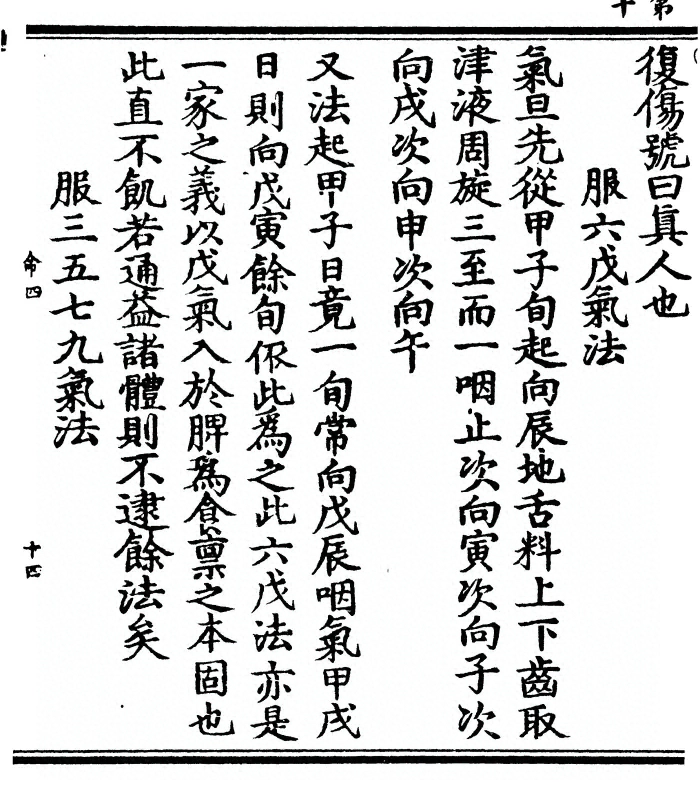 復傷號曰真人也
服六戊氣法
氣旦先從甲子旬起向辰地舌料上下齒取
津液周旋三至而一咽止次向寅次向子次
向戌次向申次向午
又法起甲子日竟一旬常向戊辰咽氣甲戌
日則向戊寅餘旬倣此為之此六戊法亦是
一家之義以戊氣入於脾為食稟之本固也
此直不飢若通益諸體則不逮餘法矣
服三五七九氣法
命四
十四